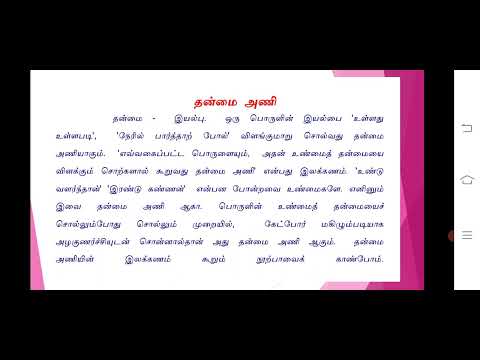 தன்மை அணி
தன்மை - இயல்பு. ஒரு பொருளின் இயல்பை 'உள்ளது
உள்ளபடி', 'நேரில் பார்த்தாற் போல்' விளங்குமாறு சொல்வது தன்மை
அணியாகும். 'எவ்வகைப்பட்ட பொருளையும், அதன் உண்மைத் தன்மையை
விளக்கும் சொற்களால் கூறுவது தன்மை அணி' என்பது இலக்கணம். 'உண்டு
வளர்ந்தான்' 'இரண்டு கண்ணன்' என்பன போன்றவை உண்மைகளே. எனினும்
இவை தன்மை அணி ஆகா. பொருளின் உண்மைத் தன்மையைச்
சொல்லும்போது சொல்லும் முறையில், கேட்போர் மகிழும்படியாக
அழகுணர்ச்சியுடன் சொன்னால்தான் அது தன்மை அணி ஆகும். தன்மை
அணியின் இலக்கணம் கூறும் நூற்பாவைக் காண்போம்.